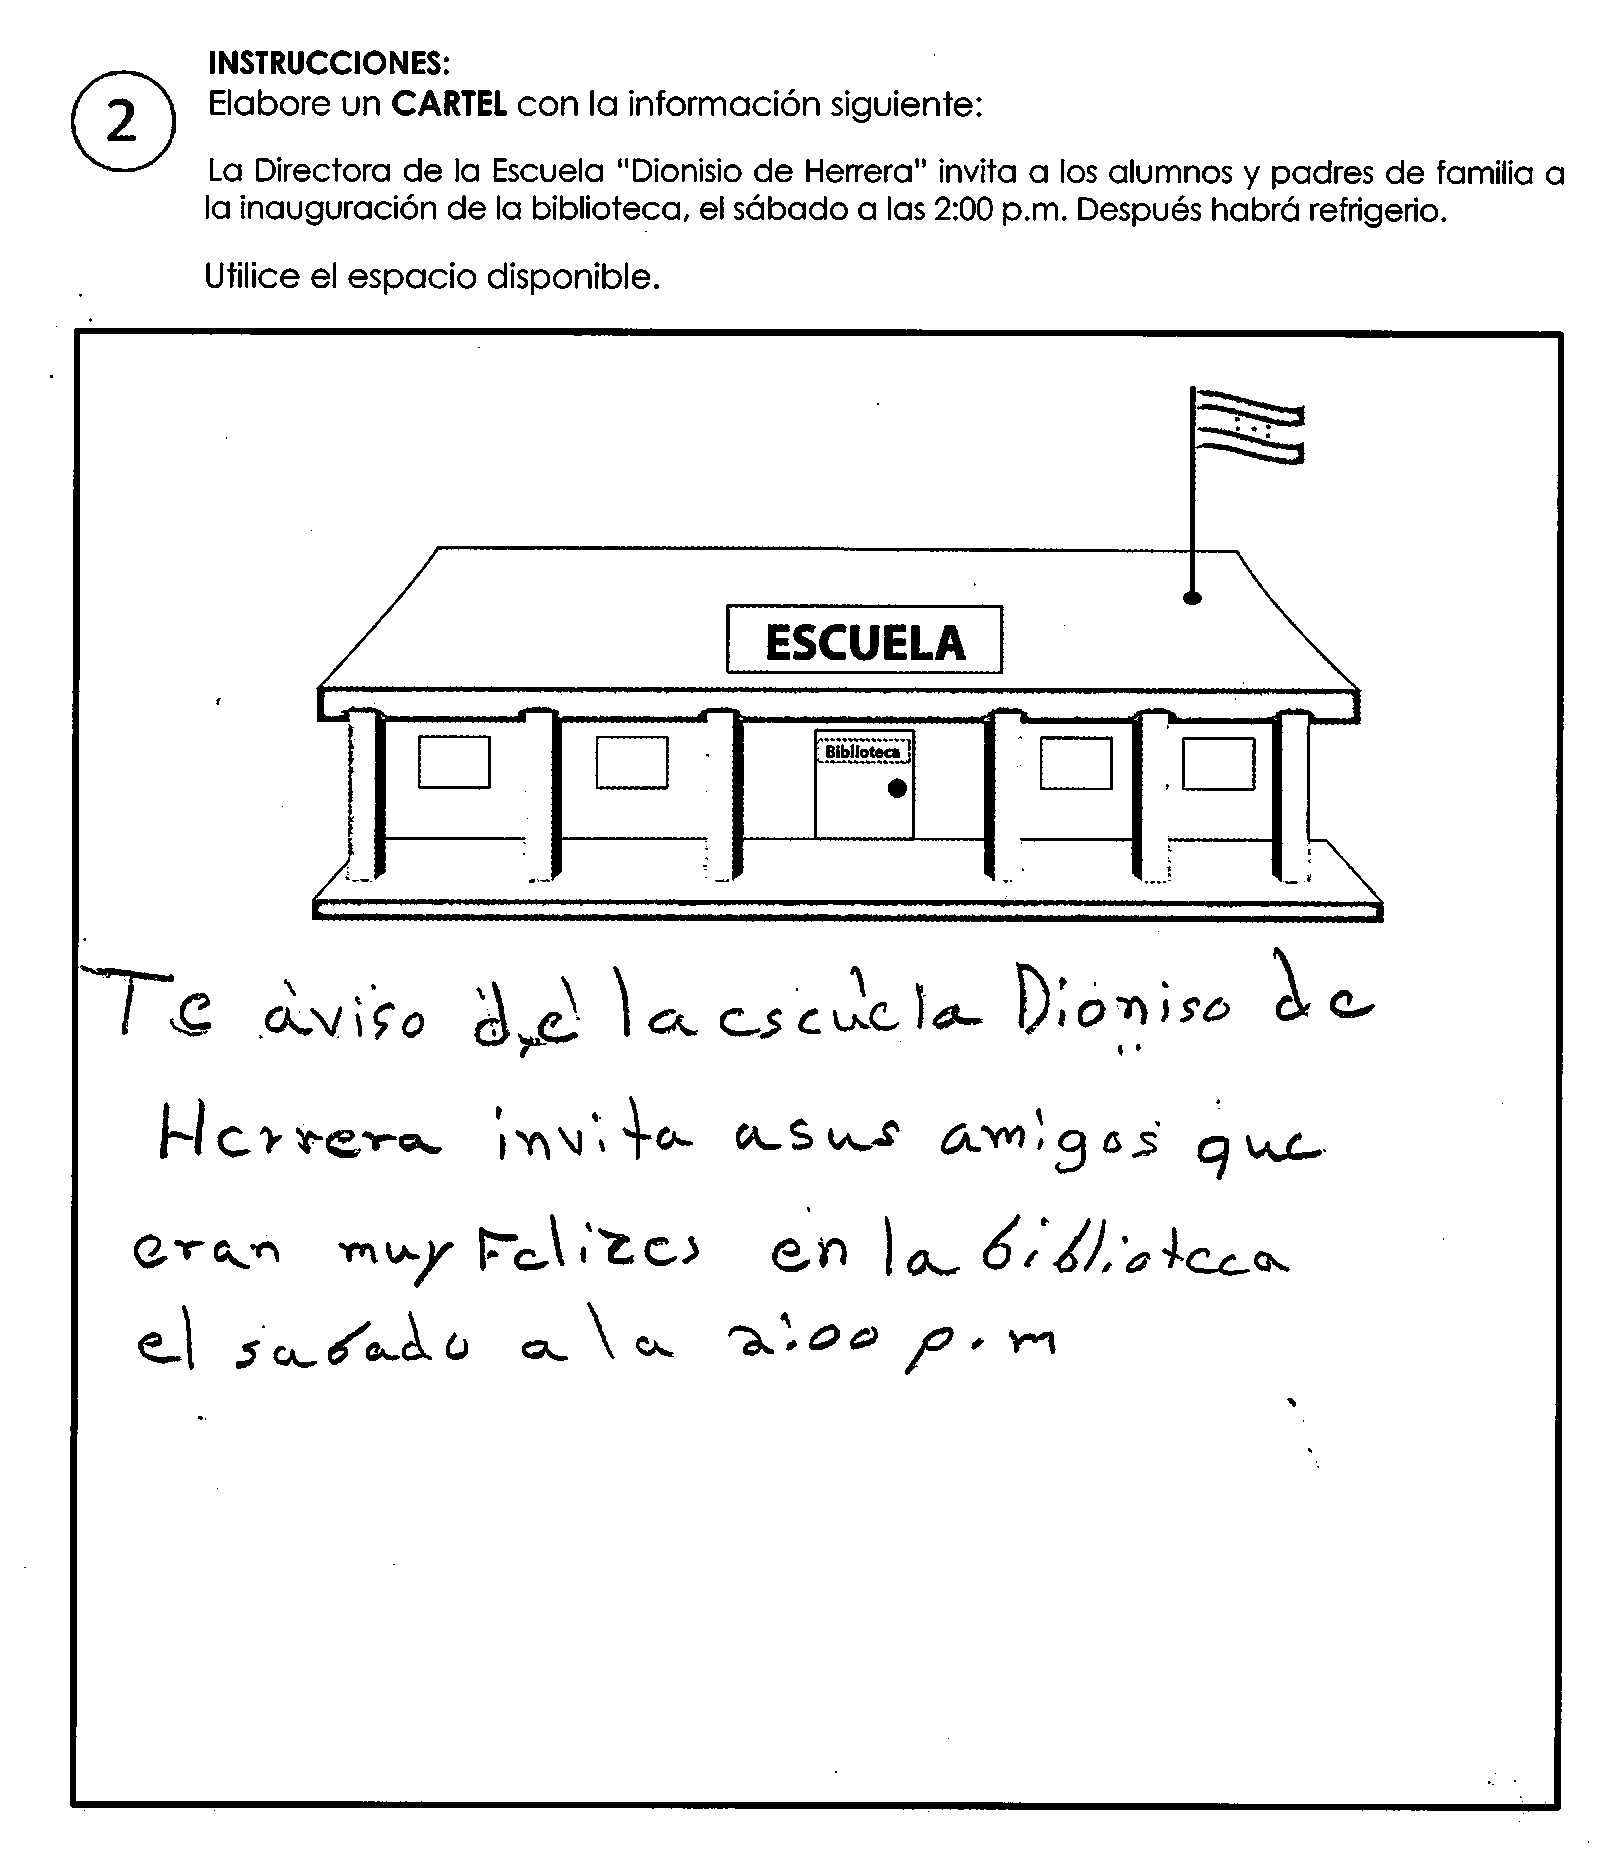 INSTRUCCIONES:
2
Elabore un CARTEL con la información siguiente:
La Directora de la Escuela "Dionisio de Herrera" invita a los alumnos y padres de familia a
la inauguración de la biblioteca, el sábado a las 2:00 p.m. Después habrá refrigerio.
Utilice el espacio disponible.
ESCUELA
Biblioteca
Te aviso de la escuela Dioniso de
Herrera invita asus amigos que
eran muy Felizes en la biblioteca
el sabado a la 2:00 p.m